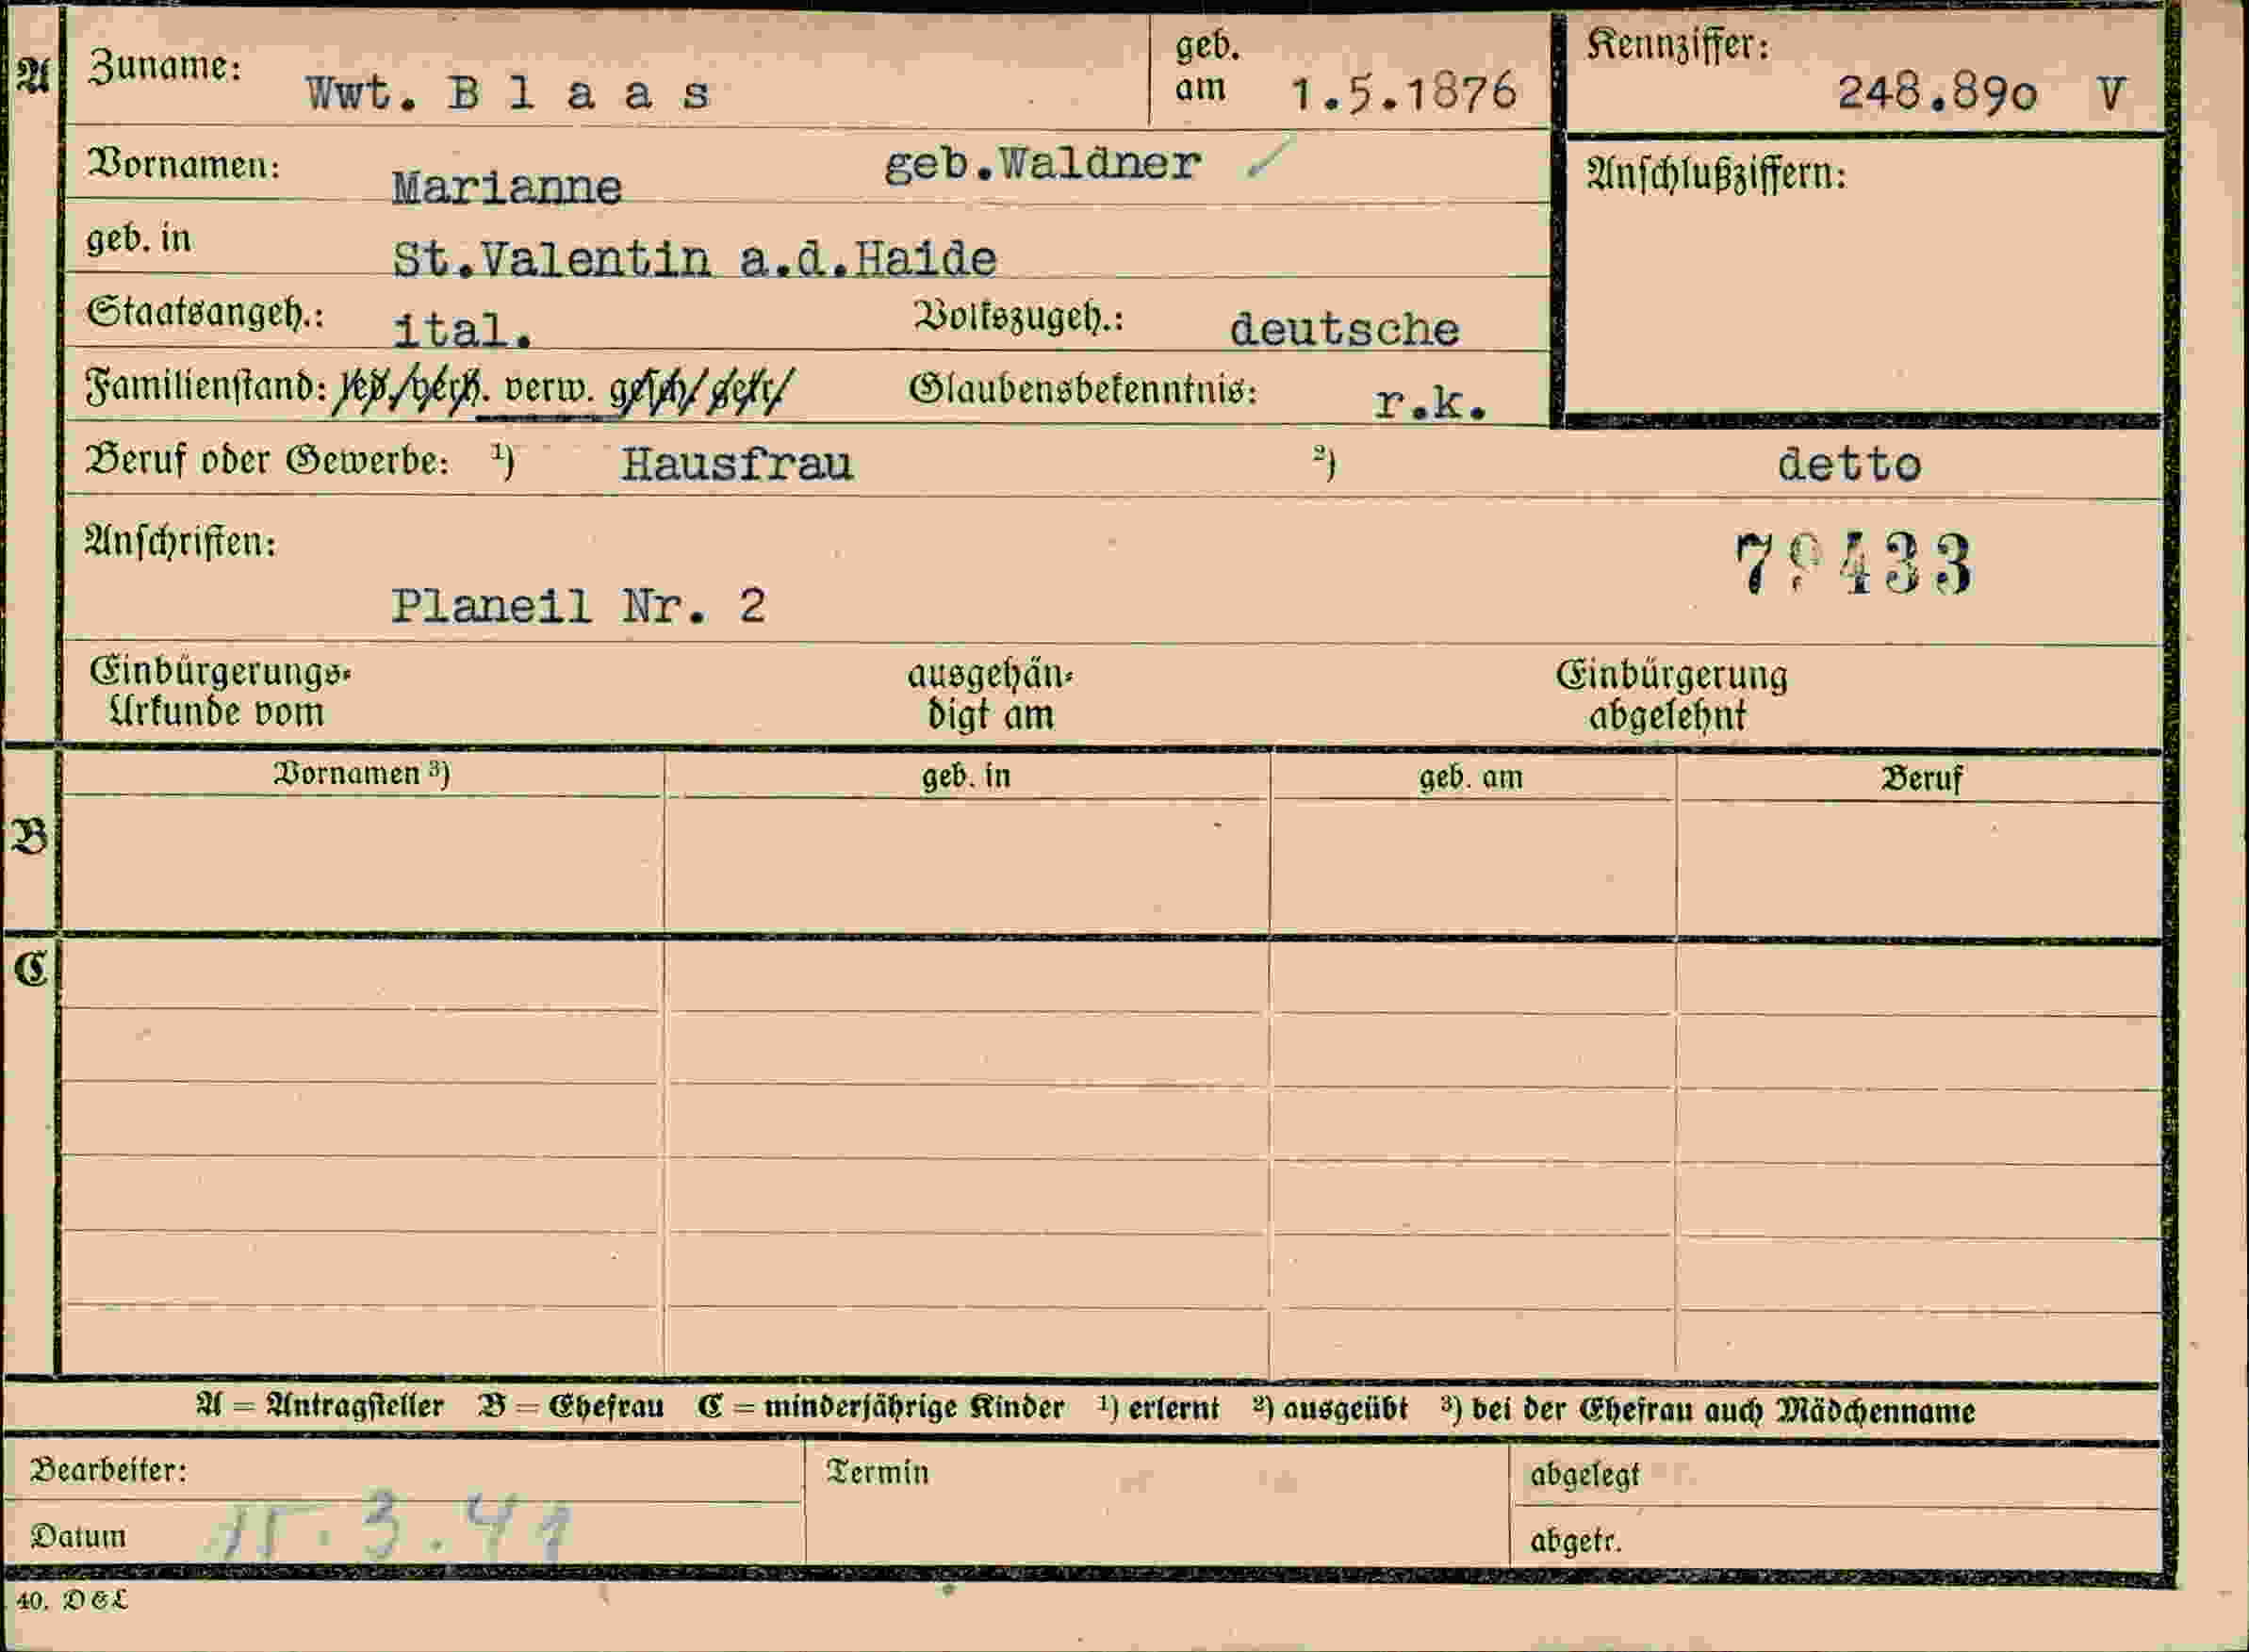 A Zuname: Wwt. B l a a s geb. am 1.5.1876 Kennziffer: 248.890 V
Vornamen: Marianne geb.Waldner Anschlußziffern:
geb. in St.Valentin a.d.Haide
Staatsangeh.: ital. Volkszugeh.: deutsche
Familienstand: led./verh. verw. gesch/ getr/ Glaubensbekenntnis: r.k.
Beruf oder Gewerbe: ¹) Hausfrau ²) detto
Anschriften:
Planeil Nr. 2
Einbürgerungs- ausgehän- Einbürgerung
Urkunde vom digt am abgelehnt
Vornamen ³) geb. in geb. am Beruf
B
C
A = Antragsteller B = Ehefrau C = minderjährige Kinder ¹) erlernt ²) ausgeübt ³) bei der Ehefrau auch Mädchenname
Bearbeiter: Termin abgelegt
Datum 15.3.41 abgetr.
40. D&L